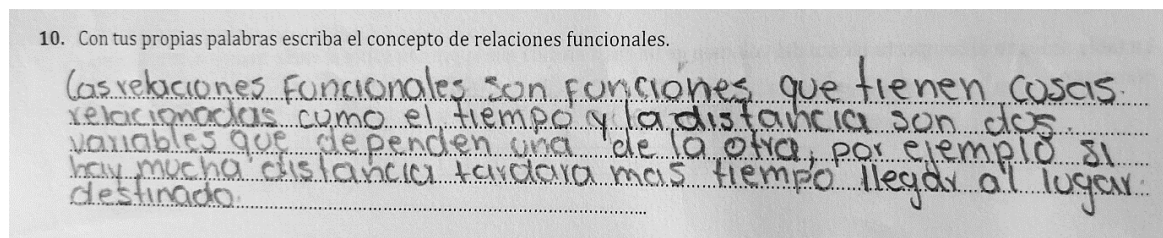 10. Con tus propias palabras escriba el concepto de relaciones funcionales.
Las relaciones Funcionales son funciones que tienen cosas
relacionadas como el tiempo y la distancia son dos
variables que dependen una de la otra, por ejemplo si
hay mucha distancia tardara mas tiempo llegar al lugar
destinado.